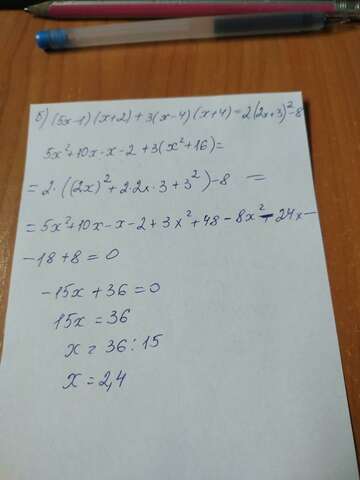 б) (5x-1)(x+2)+3(x-4)(x+4)=2(2x+3)²-8
5x²+10x-x-2+3(x²+16)=
=2·((2x)²+2·2x·3+3²)-8 =
=5x²+10x-x-2+3x²+48-8x²-24x-
-18+8=0
-15x+36=0
15x=36
x=36:15
x=2,4